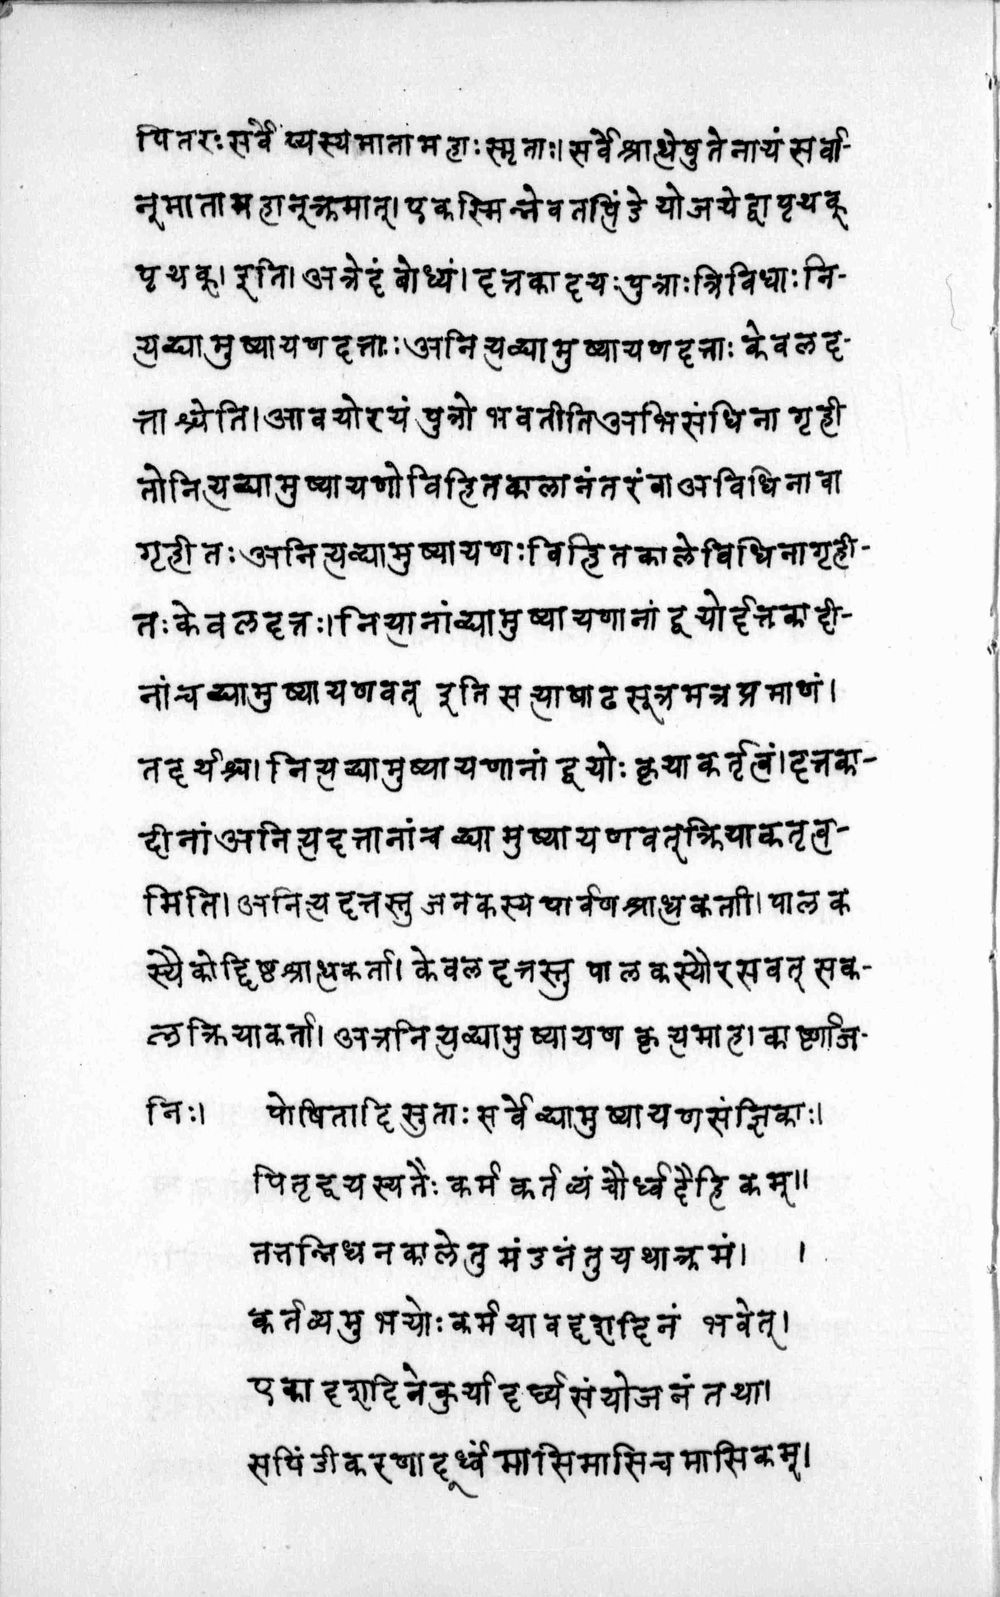 पितरःसर्वेप्यस्यमातामहाःस्मृताः।सर्वेश्राद्धेषुतेनायंसर्वा-
न्मातामहान्क्रमात्।एकस्मिन्नेवतत्पिंडेयोजयेद्वापृथक्
पृथक्।इति।अत्रेदंबोध्यं।दत्तकादयःपुत्राःत्रिविधाःनि-
त्यव्द्यामुष्यायणदत्ताःअनित्यव्द्यामुष्यायणदत्ताः केवलद-
त्ताश्चेति।आवयोरयंपुत्रोभवतीतिअभिसंधिनागृही
तोनित्यव्द्यामुष्यायणोविहितकालानंतरंवाअविधिनावा
गृहीतःअनित्यव्द्यामुष्यायणःविहितकालेविधिनागृही-
तःकेवलदत्तः।नित्यानांव्द्यामुष्यायणानां द्वयोर्दत्तकादी-
नांचव्द्यामुष्यायणवत् इतिसत्याषाढसूत्रमत्रप्रमाणं।
तदर्थश्च।नित्यव्द्यामुष्यायणानां द्वयोः कृयाकर्तृत्वं।दत्तका-
दीनांअनित्यदत्तानांचव्द्यामुष्यायणवत्क्रियाकतृत्व-
मिति।अनित्यदत्तस्तुजनकस्यपार्वणश्राद्धकर्ता।पालक
स्यैकोद्दिष्टश्राद्धकर्ता।केवलदत्तस्तुपालकस्यौरसवत्सक-
लक्रियाकर्ता।अत्रनित्यव्द्यामुष्यायणकृत्यमाह।कार्ष्णाजि-
निः। पोषितादिसुताःसर्वेव्द्यामुष्यायणसंज्ञिकाः।
पितृद्वयस्यतैःकर्मकर्तव्यंचौर्ध्वदैहिकम्॥
तत्तन्निधनकालेतुमंडनंतुयथाक्रमं। ।
कर्तव्यमुभयोःकर्मयावद्दशदिनं भवेत्।
एकादशदिनेकुर्यादर्घ्यसंयोजनंतथा।
सपिंडीकरणादूर्ध्वंमासिमासिचमासिकम्।